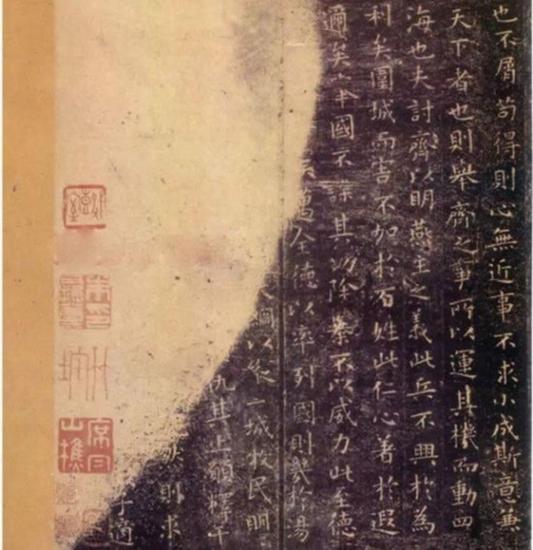 也不屑苟得則心無近事不求小成斯意兼
天下者也則舉齊之事所以運其機而動四
海也夫討齊以明燕主之義此兵不興於為
利矣圍城而害不加於百姓此仁心著於遐
邇矣舉國不謀其功除暴不以威力此至德
矣邁全德以率列國則幾於湯
綱以縱二城牧民明
仇其上願釋干
則求
子適